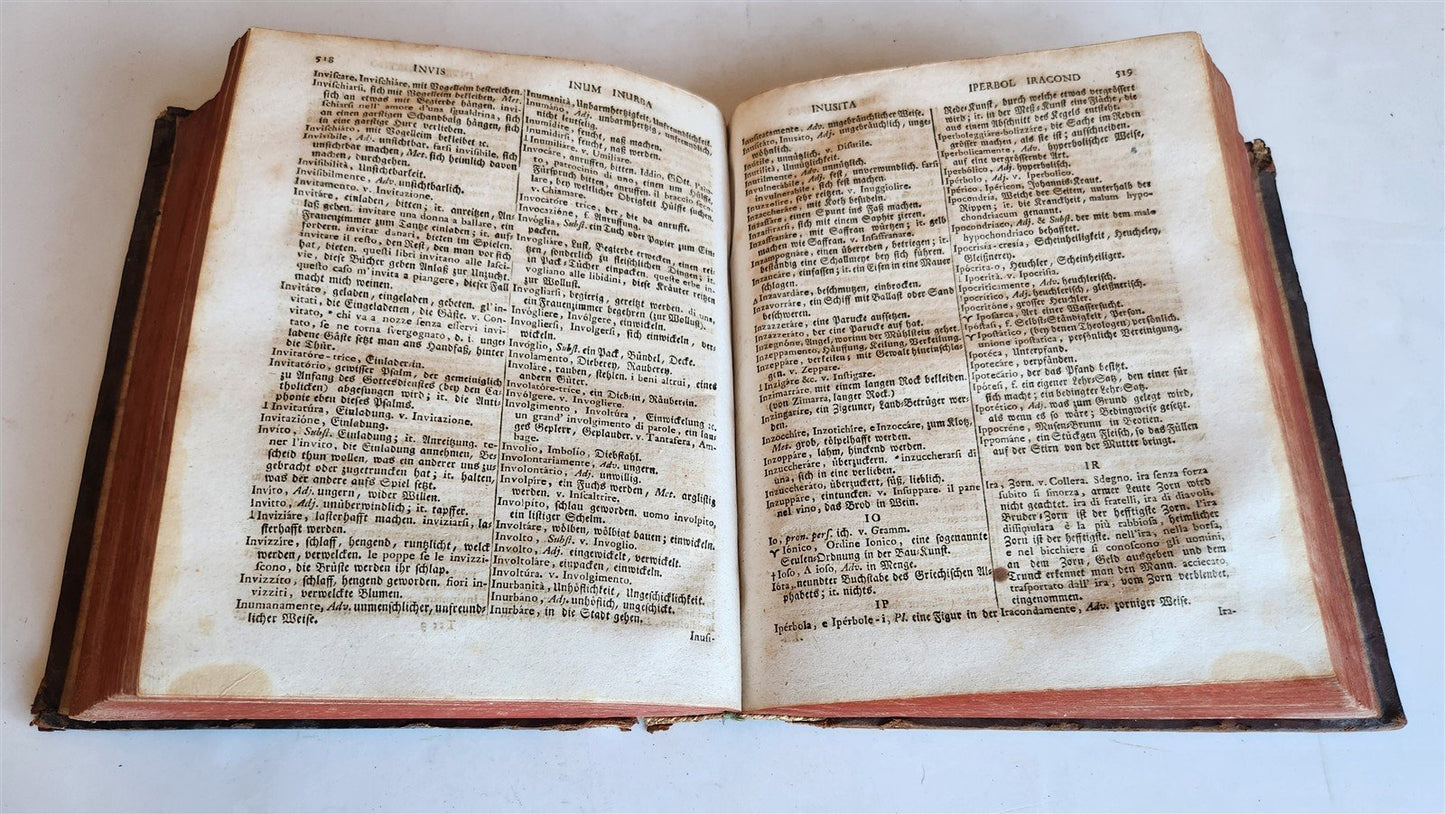 518
INVIS
INUM INURBA
Inviscare, Invischiáre, mit Vogelleim bestreichen.
Invischiársi, sich mit Vogelleim bekleiben, Met.
sich an etwas mit Begierde hängen. invi-
schiarsi nell' amore d'una squaldrina, sich
an einen garstigen Schandbalg hängen, sich
in eine garstige Hure verlieben.
Invischiáto, mit Vogelleim bekleibt ɛc.
Invisíbile, Adj. unsichtbar. farsi invisibile, sich
unsichtbar machen, Met. sich heimlich davon
machen, durchgehen.
Invisibilità, Unsichtbarkeit.
Invisibilmente, Adv. unsichtbarlich.
Invitamento. v. Invitazione.
Invitáre, einladen, bitten; it. anreitzen, An-
laß geben. invitare una donna a ballare, ein
Frauenzimmer zum Tantze einladen; it. auf-
fordern. invitar danari, bieten im Spielen.
invitare il resto, den Rest, den man vor sich
hat, bieten. questi libri invitano alle lasci-
vie, diese Bücher geben Anlaß zur Unzucht.
questo caso m'invita a piangere, dieser Fall
macht mich weinen.
Invitáto, geladen, eingeladen, gebeten. gl' in-
vitati, die Eingeladenen, die Gäste. v. Con-
vitato, * chi va a nozze senza esservi invi-
tato, se ne torna svergognato, d. i. unge-
ladene Gäste setzt man aus Handfaß, hinter
die Thür.
Invitatóre-trice, Einlader-in.
Invitatório, gewisser Psalm, der gemeiniglich
zu Anfang des Gottesdienstes (bey den Ca-
tholicken) abgesungen wird; it. die Anti-
phonie eben dieses Psalms.
‡ Invitatúra, Einladung. v. Invitazione.
Invitazióne, Einladung.
Invito, Subst. Einladung; it. Anreitzung. te-
ner l'invito, die Einladung annehmen, Be-
scheid thun wollen, was ein anderer uns zu-
gebracht oder zugetruncken hat; it. halten,
was der andere aufs Spiel setzt.
Invito, Adj. ungern, wider Willen.
Invitto, Adj. unüberwindlich; it. tapffer.
‡ Inviziáre, lasterhafft machen. inviziarsi, la-
sterhafft werden.
Invizzíre, schlaff, hengend, runtzlicht, welck
werden, verwelcken. le poppe se le invizzi-
scono, die Brüste werden ihr schlap.
Invizzíto, schlaff, hengend geworden. fiori in-
vizziti, verwelckte Blumen.
Inumanamente, Adv. unmenschlicher, unfreund-
licher Weise.
Inumanità, Unbarmhertzigkeit, Unfreundlichkeit.
Inumáno, Adj. unbarmhertzig, unfreundlich,
nicht leutselig.
Inumidíre, feucht, naß machen.
Inumidírsi, feucht, naß werden.
Inumiliáre. v. Umiliare.
Invocáre, anruffen, bitten. Iddio, GOtt,
to, patrocinio di uno, einen um Hülffe,
Fürspruch bitten, anruffen. il braccio seco-
lare, bey weltlicher Obrigkeit Hülffe suchen.
v. Chiamare.
Invocatóre-trice, der, die da anrufft.
Invocazióne, f. Anruffung.
Invóglia, Subst. ein Tuch oder Papier zum Ein-
packen.
Invogliáre, Lust, Begierde erwecken, einen rei-
tzen, sonderlich zu fleischlichen Dingen; it.
in Pack-Tücher einpacken. queste erbe in-
vogliano alle libidini, diese Kräuter reitzen
zur Wollust.
Invogliarsi, begierig, gereitzt werden. di una,
ein Frauenzimmer begehren (zur Wollust).
Invógliere, Invólgere, einwickeln.
Invogliersi, Involgersi, sich einwickeln, ver-
wickeln.
Invóglio, Subst. ein Pack, Bündel, Decke.
Involamento, Dieberey, Rauberey.
Involáre, rauben, stehlen. i beni altrui, eines
andern Güter.
Involatóre-trice, ein Dieb-in, Räuber-in.
Invólgere. v. Invogliere.
Involgimento, Involtúra, Einwickelung ɛc.
un grand' involgimento di parole, ein lau-
ges Geplerr, Geplauder. v. Tantafera, Am-
bage.
Involio, Imbolio, Diebstahl.
Involontariamente, Adv. ungern.
Involontário, Adj. unwillig.
Involpíre, ein Fuchs werden, Met. arglistig
werden. v. Inscaltrire.
Involpíto, schlau geworden. uomo involpito,
ein listiger Schelm.
Involtáre, wölben, wölbigt bauen; einwickeln.
Involto, Subst. v. Invoglio.
Involto, Adj. eingewickelt, verwickelt.
Involtoláre, einpacken, einwickeln.
Involtúra. v. Involgimento.
Inurbanità, Unhöflichkeit, Ungeschicklichkeit.
Inurbáno, Adj. unhöflich, ungeschickt.
Inurbáre, in die Stadt gehen.
Inusi-
INUSITA
IPERBOL IRACOND
519
Inusitatamente, Adv. ungebräuchlicher Weise.
Inusitáto, Inusito, Adj. ungebräuchlich, unge-
wöhnlich.
Inútile, unnützlich. v. Disutile.
Inutilità, Unnützlichkeit.
Inutilmente, Adv. unnützlich.
Invulnerábile, Adj. fest, unverwundlich. farsi
invulnerabile, sich fest machen.
Inuzzolíre, sehr reitzen. v. Inuggiolire.
Inzaccheráre, mit Koth besudeln.
Inzaffáre, einen Spunt ins Faß machen.
Inzaffirarsi, sich mit einem Saphir zieren.
Inzaffranáre, mit Saffran würtzen; it. gelb
machen wie Saffran. v. Insaffranare.
Inzampognáre, einen übertreben, betriegen; it.
beständig eine Schallmeye bey sich führen.
Inzancáre, einfassen; it. ein Eisen in eine Mauer
schlagen.
Inzavardáre, beschmutzen, einbrocken.
Inzavorráre, ein Schiff mit Ballast oder Sand
beschweren.
Inzazzeráre, eine Parucke aufsetzen.
Inzazzeráto, der eine Parucke auf hat.
Inzegnóne, Angel, worinn der Mühlstein gehet.
Inzeppamento, Häuffung, Keilung, Verkeilung.
Inzeppáre, verkeilen; mit Gewalt hineinschla-
gen. v. Zeppare.
‡ Inzigáre &c. v. Instigare.
Inzimarráre, mit einem langen Rock bekleiden.
(von Zimarra, langer Rock.)
Inzingaríre, ein Zigeuner, Land-Betrüger wer-
den.
Inzocchíre, Inzotichíre, e Inzoccáre, zum Klotz,
Met. grob, tölpelhafft werden.
Inzoppáre, lahm, hinckend werden.
Inzuccheráre, überzuckern. * inzuccherarsi di
una, sich in eine verlieben.
Inzuccheráto, überzuckert, süß, lieblich.
Inzuppáre, eintuncken. v. Insuppare. il pane
nel vino, das Brod in Wein.
IO
Io, pron. pers. ich. v. Gramm.
Iónico, Ordine Ionico, eine sogenannte
Seulen-Ordnung in der Bau-Kunst.
† Ioso, A ioso, Adv. in Menge.
Ióta, neundter Buchstabe des Griechischen Al-
phabets; it. nichts.
IP
Ipérbola, e Ipérbole-i, Pl. eine Figur in der
Rede-Kunst, durch welche etwas vergrössert
wird; it. in der Meß-Kunst eine Fläche, die
aus einem Abschnitt des Kegels entsteht.
Iperboleggiáre-bolizzáre, die Sache im Reden
grösser machen, als sie ist; aufschneiden.
Iperbolicamente, Adv. hyperbolischer Weise,
auf eine vergrössernde Art.
Iperbólico, Adj. hyperbolisch.
Ipérbolo, Adj. v. Iperbolico.
Ipérico, Ipéricon, Johannis-Kraut.
Ipocondría, Weiche der Seiten, unterhalb der
Rippen; it. die Kranckheit, malum hypo-
chondriacum genannt.
Ipocondríaco, Adj. & Subst. der mit dem malo
hypochondriaco behafftet.
Ipocrisía-cresía, Scheinheiligkeit, Heucheley,
Gleißnerey.
Ipócrita-o, Heuchler, Scheinheiliger.
Ipocrità. v. Ipocrisia.
Ipocriticamente, Adv. heuchlerisch.
Ipocrítico, Adj. heuchlerisch, gleißnerisch.
Ipocritóne, grosser Heuchler.
Iposarca, Art einer Wassersucht.
Ipóstasi, f. Selbst-Ständigkeit, Person.
Ipostático, (bey denen Theologen) persönlich.
unione ipostatica, persönliche Vereinigung.
Ipotéca, Unterpfand.
Ipotecáre, verpfänden.
Ipotecário, der das Pfand besitzt.
Ipótesi, f. ein eigener Lehr-Satz, den einer für
sich macht; ein bedingter Lehr-Satz.
Ipotético, Adj. was zum Grund gelegt wird,
als wenn es so wäre; Bedingweise gesetzt.
Ippocréne, Musen-Brunn in Beotien.
Ippománe, ein Stückgen Fleisch, so das Füllen
auf der Stirn von der Mutter bringt.
IR
Ira, Zorn. v. Collera. Sdegno. ira senza forza
subito si smorza, armer Leute Zorn wird
nicht geachtet. ira di fratelli, ira di diavoli,
Bruder-Zorn ist der hefftigste Zorn. l'ira
dissimulata è la più rabbiosa, heimlicher
Zorn ist der hefftigste. nell'ira, nella borsa,
e nel bicchiere si conoscono gli uomini,
an dem Zorn, Geld ausgeben und dem
Trunck erkennet man den Mann. acciecato,
trasportato dall'ira, vom Zorn verblendet,
eingenommen.
Iracondamente, Adv. zorniger Weise.
Ira-